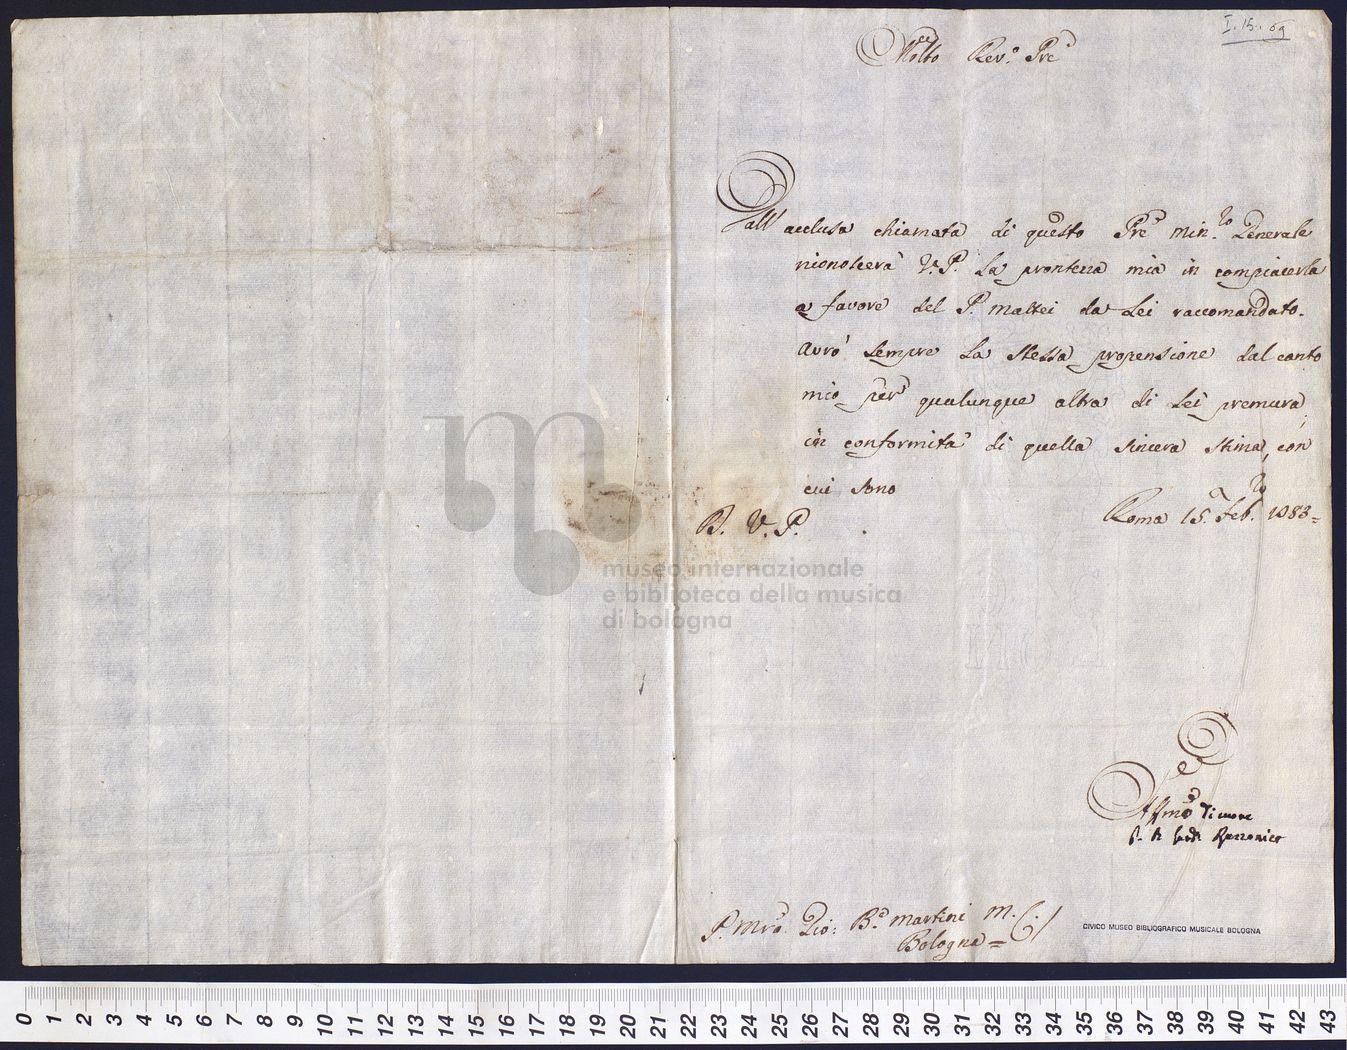 I. 15. 69
Molto Rev.o Pre
Dall' acclusa chiamata di questo Pre Min.ro Generale
riconoscerà V. P. la prontezza mia in compiacerla
a favore del P. Mattei da Lei raccomandato.
Avrò sempre la stessa propensione dal canto
mio per qualunque altra di Lei premura,
in conformità di quella sincera stima, con
cui sono
V. P. Roma 15. Feb.
Affmo di cuore
Rezzonico
P. Mro Gio: B.a Martini M. C.
Bologna =
museo internazionale
e biblioteca della musica
di bologna
CIVICO MUSEO BIBLIOGRAFICO MUSICALE BOLOGNA
0 1 2 3 4 5 6 7 8 9 10 11 12 13 14 15 16 17 18 19 20 21 22 23 24 25 26 27 28 29 30 31 32 33 34 35 36 37 38 39 40 41 42 43